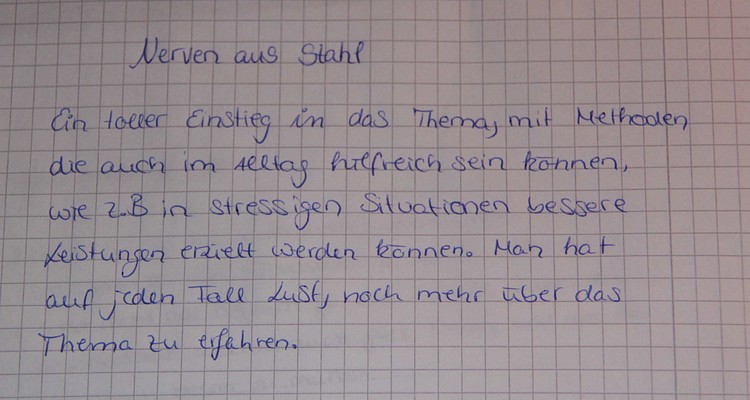 Nerven aus Stahl
Ein toller Einstieg in das Thema, mit Methoden
die auch im Alltag hilfreich sein können,
wie z.B in stressigen Situationen bessere
Leistungen erzielt werden können. Man hat
auf jeden Fall Lust, noch mehr über das
Thema zu erfahren.